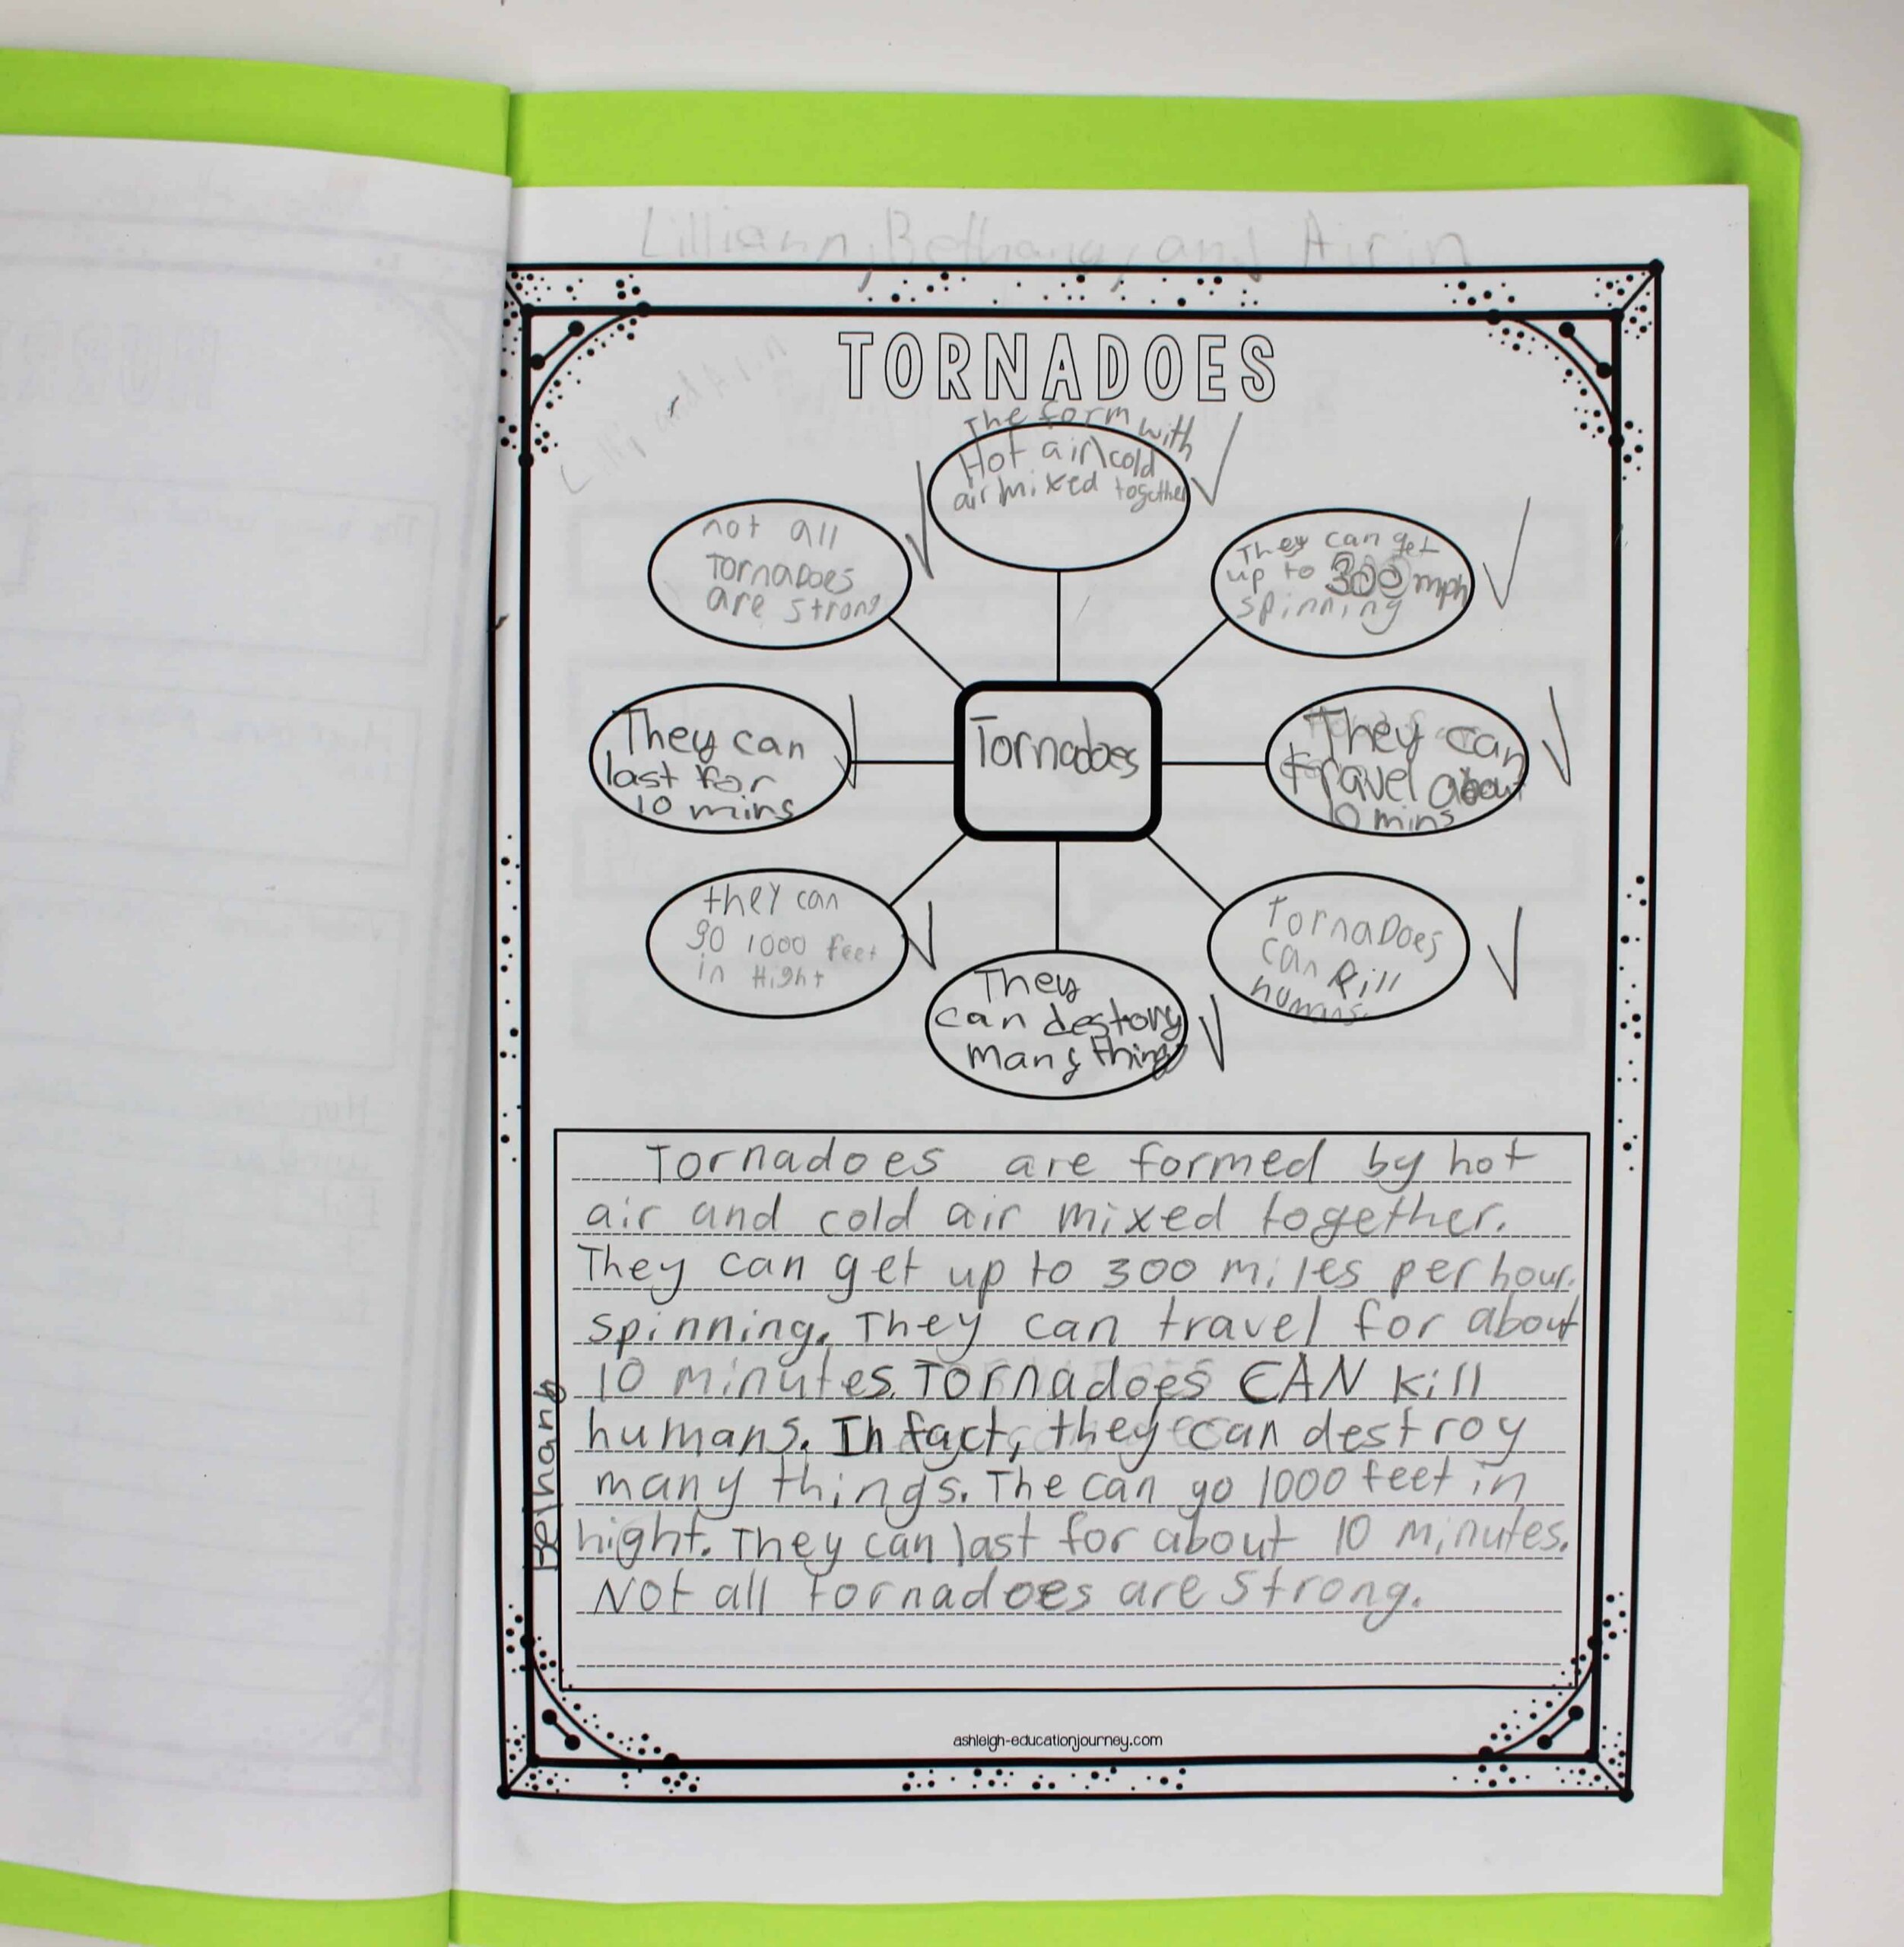 Lilliann, Bethany, and Airin
TORNADOES
The form with
Hot air\cold
air mixed together
not all
TornaDoes
are strong
They can get
up to 300 mph
spinning
They can
last for
10 mins
Tornadoes
They can
travel about
10 mins
they can
go 1000 feet
in Hight
They
can destory
many things
TornaDoes
can kill
humans.
Tornadoes are formed by hot
air and cold air mixed together.
They can get up to 300 miles per hour.
spinning. They can travel for about
10 minutes. Tornadoes CAN kill
humans. In fact, they can destroy
many things. The can go 1000 feet in
hight. They can last for about 10 minutes.
Not all tornadoes are strong.
Bethany
ashleigh-educationjourney.com